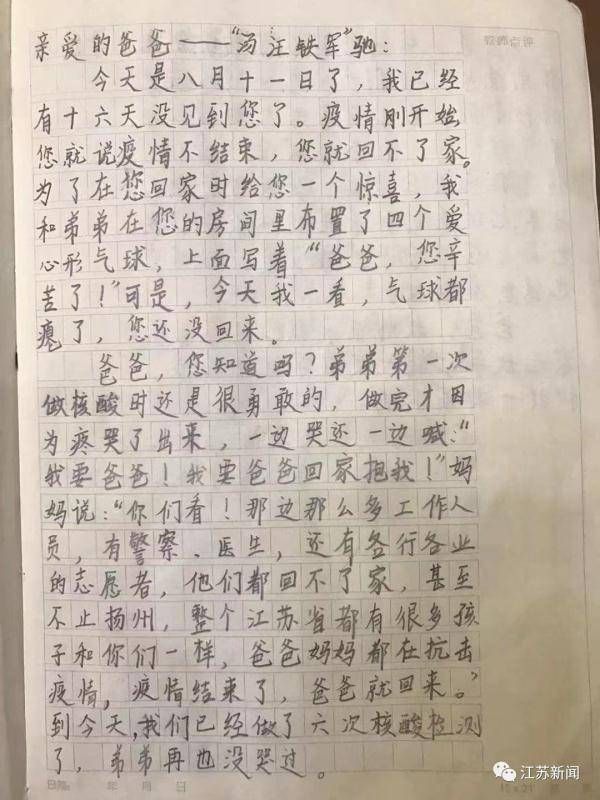 亲爱的爸爸——“汤汪铁军”驰：
教师点评
今天是八月十一日了，我已经
有十六天没见到您了。疫情刚开始，
您就说疫情不结束，您就回不了家。
为了在您回家时给您一个惊喜，我
和弟弟在您的房间里布置了四个爱
心形气球，上面写着“爸爸，您辛
苦了！”可是，今天我一看，气球都
瘪了，您还没回来。
爸爸，您知道吗？弟弟第一次
做核酸时还是很勇敢的，做完才因
为疼哭了出来，一边哭还一边喊：“
我要爸爸！我要爸爸回家抱我！”妈
妈说：“你们看！那边那么多工作人
员，有警察、医生，还有各行各业
的志愿者，他们都回不了家，甚至
不止扬州，整个江苏省都有很多孩
子和你们一样，爸爸妈妈都在抗击
疫情，疫情结束了，爸爸就回来。”
到今天，我们已经做了六次核酸检测
了，弟弟再也没哭过。
日期 年 月 日
15×21
江苏新闻